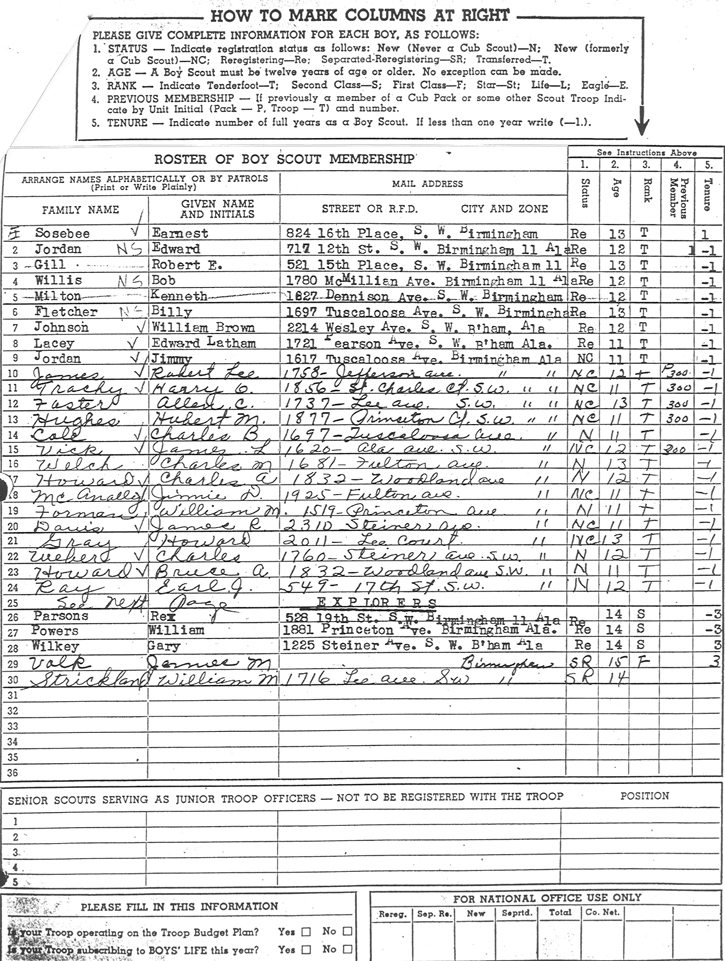 HOW TO MARK COLUMNS AT RIGHT
PLEASE GIVE COMPLETE INFORMATION FOR EACH BOY, AS FOLLOWS:
1. STATUS — Indicate registration status as follows: New (Never a Cub Scout)—N; New (formerly
a Cub Scout)—NC; Reregistering—Re; Separated-Reregistering—SR; Transferred—T.
2. AGE — A Boy Scout must be twelve years of age or older. No exception can be made.
3. RANK — Indicate Tenderfoot—T; Second Class—S; First Class—F; Star—St; Life—L; Eagle—E.
4. PREVIOUS MEMBERSHIP — If previously a member of a Cub Pack or some other Scout Troop Indi-
cate by Unit Initial (Pack — P, Troop — T) and number.
5. TENURE — Indicate number of full years as a Boy Scout. If less than one year write (—1.).
ROSTER OF BOY SCOUT MEMBERSHIP
See Instructions Above
1. 2. 3. 4. 5.
ARRANGE NAMES ALPHABETICALLY OR BY PATROLS
(Print or Write Plainly)
MAIL ADDRESS
Status Age Rank Previous Member Tenure
FAMILY NAME GIVEN NAME AND INITIALS STREET OR R.F.D. CITY AND ZONE
Sosebee √ Earnest 824 16th Place, S. W. Birmingham Re 13 T 1
2 Jordan NS Edward 717 12th St. S. W. Birmingham 11 Ala Re 12 T 1 -1
3 Gill Robert E. 521 15th Place, S. W. Birmingham 11 Re 13 T -1
4 Willis NS Bob 1780 McMillian Ave. Birmingham 11 Ala Re 12 T -1
5 Milton Kenneth 1627 Dennison Ave. S. W. Birmingham Re 12 T -1
6 Fletcher NS Billy 1697 Tuscaloosa Ave. S. W. Birmingha Re 13 T -1
7 Johnson √ William Brown 2214 Wesley Ave. S. W. B'ham, Ala Re 12 T -1
8 Lacey √ Edward Latham 1721 Pearson Ave. S. W. B'ham Ala Re 11 T -1
9 Jordan √ Jimmy 1617 Tuscaloosa Ave. Birmingham Ala NC 11 T -1
10 James √ Robert Lee 1758- Jefferson ave. " " NC 12 + P300 -1
11 √ Harry 1856- St. Charles Ct. S.W. " " NC 11 T 300 -1
12 Foster Allen C. 1737- Lee ave. S.W. " " NC 13 T 300 -1
13 Hughes Hubert M. 1877- Princeton Ct. S.W. " " NC 11 T 300 -1
14 Cole √ Charles B. 1697- Tuscaloosa ave. " N 11 T -1
15 Vick √ James L 1620- Ala ave. S.W. " NC 12 T 300 -1
16 Welch Charles M 1681- Fulton ave. " N 13 T -1
7 Howard √ Charles A 1832- Woodland ave " N 12 T -1
18 McAnally √ Jimmie D. 1925- Fulton ave. " NC 11 + -1
19 Forman William M. 1519- Princeton ave " N 11 + -1
20 Davis √ James R 2310 Steiner ave. " NC 11 T -1
21 Gray Howard 2011- Lee Court. " NC 13 T -1
22 √ Charles 1760- Steiner ave. S.W. " N 12 T -1
23 Howard √ Bruce A. 1832- Woodland ave S.W. " N 11 T -1
24 Ray Earl J. 549- 17th St. S.W. " N 12 T -1
25 See Next Page EXPLORERS
26 Parsons Rex 528 19th St. S.W. Birmingham 11 Ala Re 14 S -3
27 Powers William 1881 Princeton Ave. Birmingham Ala. Re 14 S -3
28 Wilkey Gary 1225 Steiner Ave. S. W. B'ham Ala Re 14 S 3
29 Volk James M. Birmingham SR 15 F 3
30 Strickland William M 1716 Lee ave. S.W " SR 14
31
32
33
34
35
36
SENIOR SCOUTS SERVING AS JUNIOR TROOP OFFICERS — NOT TO BE REGISTERED WITH THE TROOP POSITION
1
2
3.
4
5
PLEASE FILL IN THIS INFORMATION
FOR NATIONAL OFFICE USE ONLY
Rereg. Sep. Re. New Seprtd. Total Co. Net.
Is your Troop operating on the Troop Budget Plan? Yes □ No □
Is your Troop subscribing to BOYS' LIFE this year? Yes □ No □